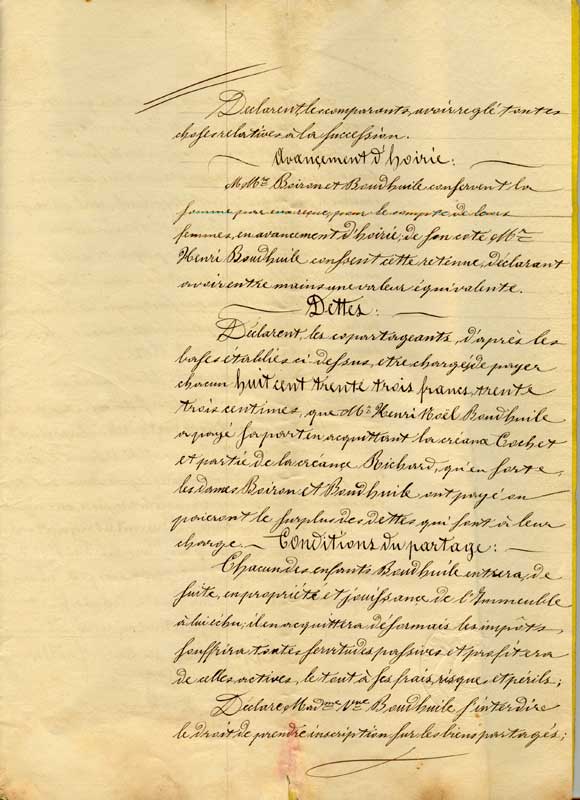 Déclarent, les comparants, avoir réglé toutes
choses relatives à la succession.
Avancement d'hoirie:
M. Mrs Boiron et Boudhuile conservent la
somme par eux reçue, pour le compte de leurs
femmes, en avancement d'hoirie; de son coté Mr
Henri Boudhuile consent cette retenue, déclarant
avoir entre mains une valeur équivalente.
Dettes:
Déclarent, les copartageants, d'après les
bases établies ci-dessus, etre chargés de payer
chacun huit cent trente trois francs, trente
trois centimes, que Mr Henri Noël Boudhuile
a payé sa part en acquittant la créance Cochet
et partie de la créance Richard, qu'en sorte
les dames Boiron et Boudhuile ont payé ou
paieront le surplus des dettes qui sont à leur
charge. Conditions du partage:
Chacun des enfants Boudhuile entrera, de
suite, en propriété et jouissance de l'Immeuble
à lui échu; il en acquittera désormais les impôts,
souffrira toutes servitudes passives et profitera
de celles actives, le tout à ses frais, risque et périls;
Déclare Madme Vve Boudhuile s'interdire
le droit de prendre inscription sur les biens partagés;